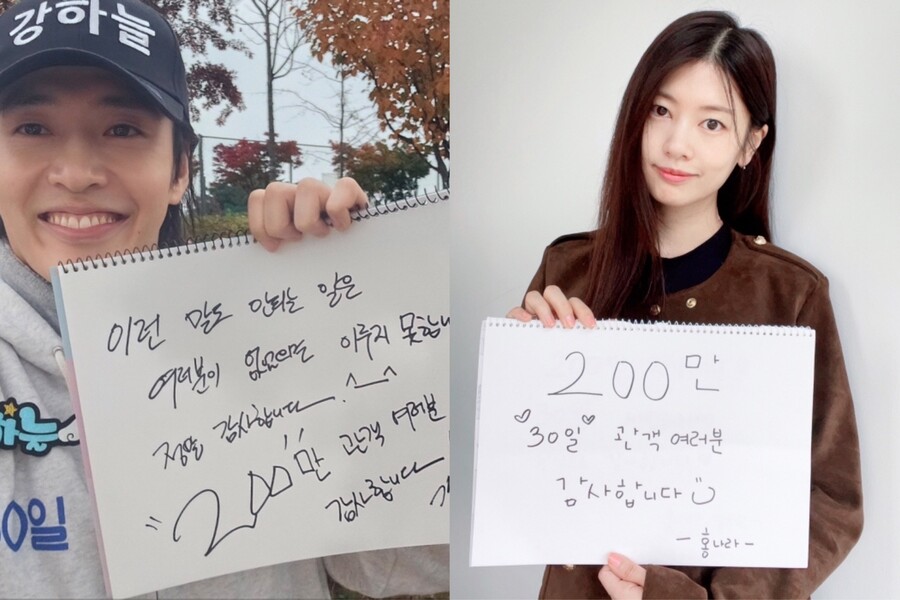 강하늘
이런 말도 안되는 일은
여러분이 없었으면 이루지 못합니
정말 감사합니다. ^_^
"200만 관객 여러분
감사합니다
하늘
30일
200만
"30일" 관객 여러분
감사합니다
- 홍나라 -